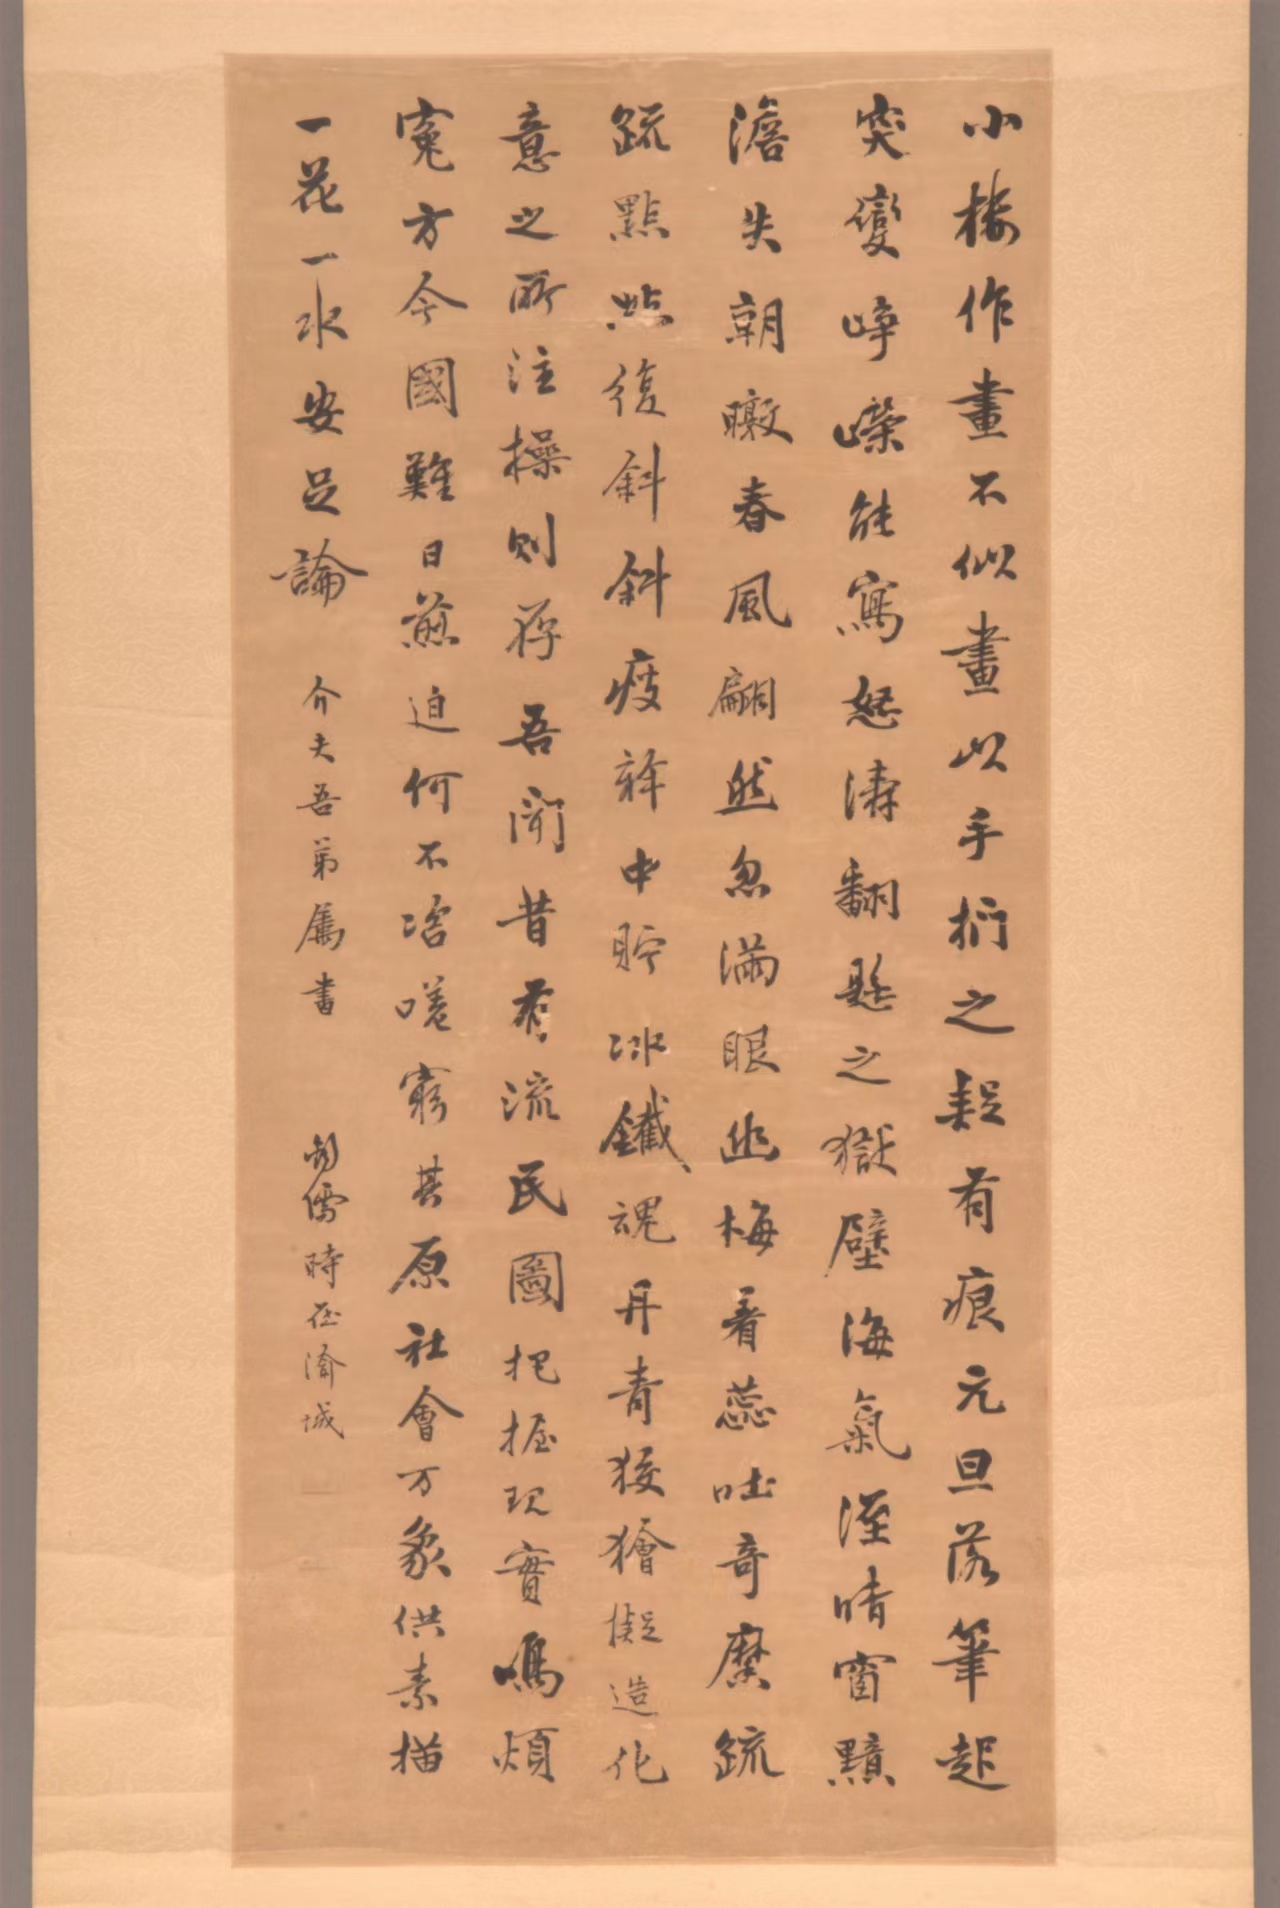 小樓作畫不似畫以手捫之疑有痕元旦落筆起
突變崢嶸能寫怒濤翻懸之嶽壁海氣溼晴窗黯
澹失朝暾春風翩然忽滿眼進梅著蕊吐奇縻疏
疏點點復斜斜疲幹中貯冰鐵魂丹青狡獪擬造化
意之所注操則存吾聞昔有流民圖把握現實鳴煩
冤方今國難日煎迫何不咨嗟窮其原社會万象供素描
一花一水安足論
介夫吾弟屬書
劍儒時在渝城